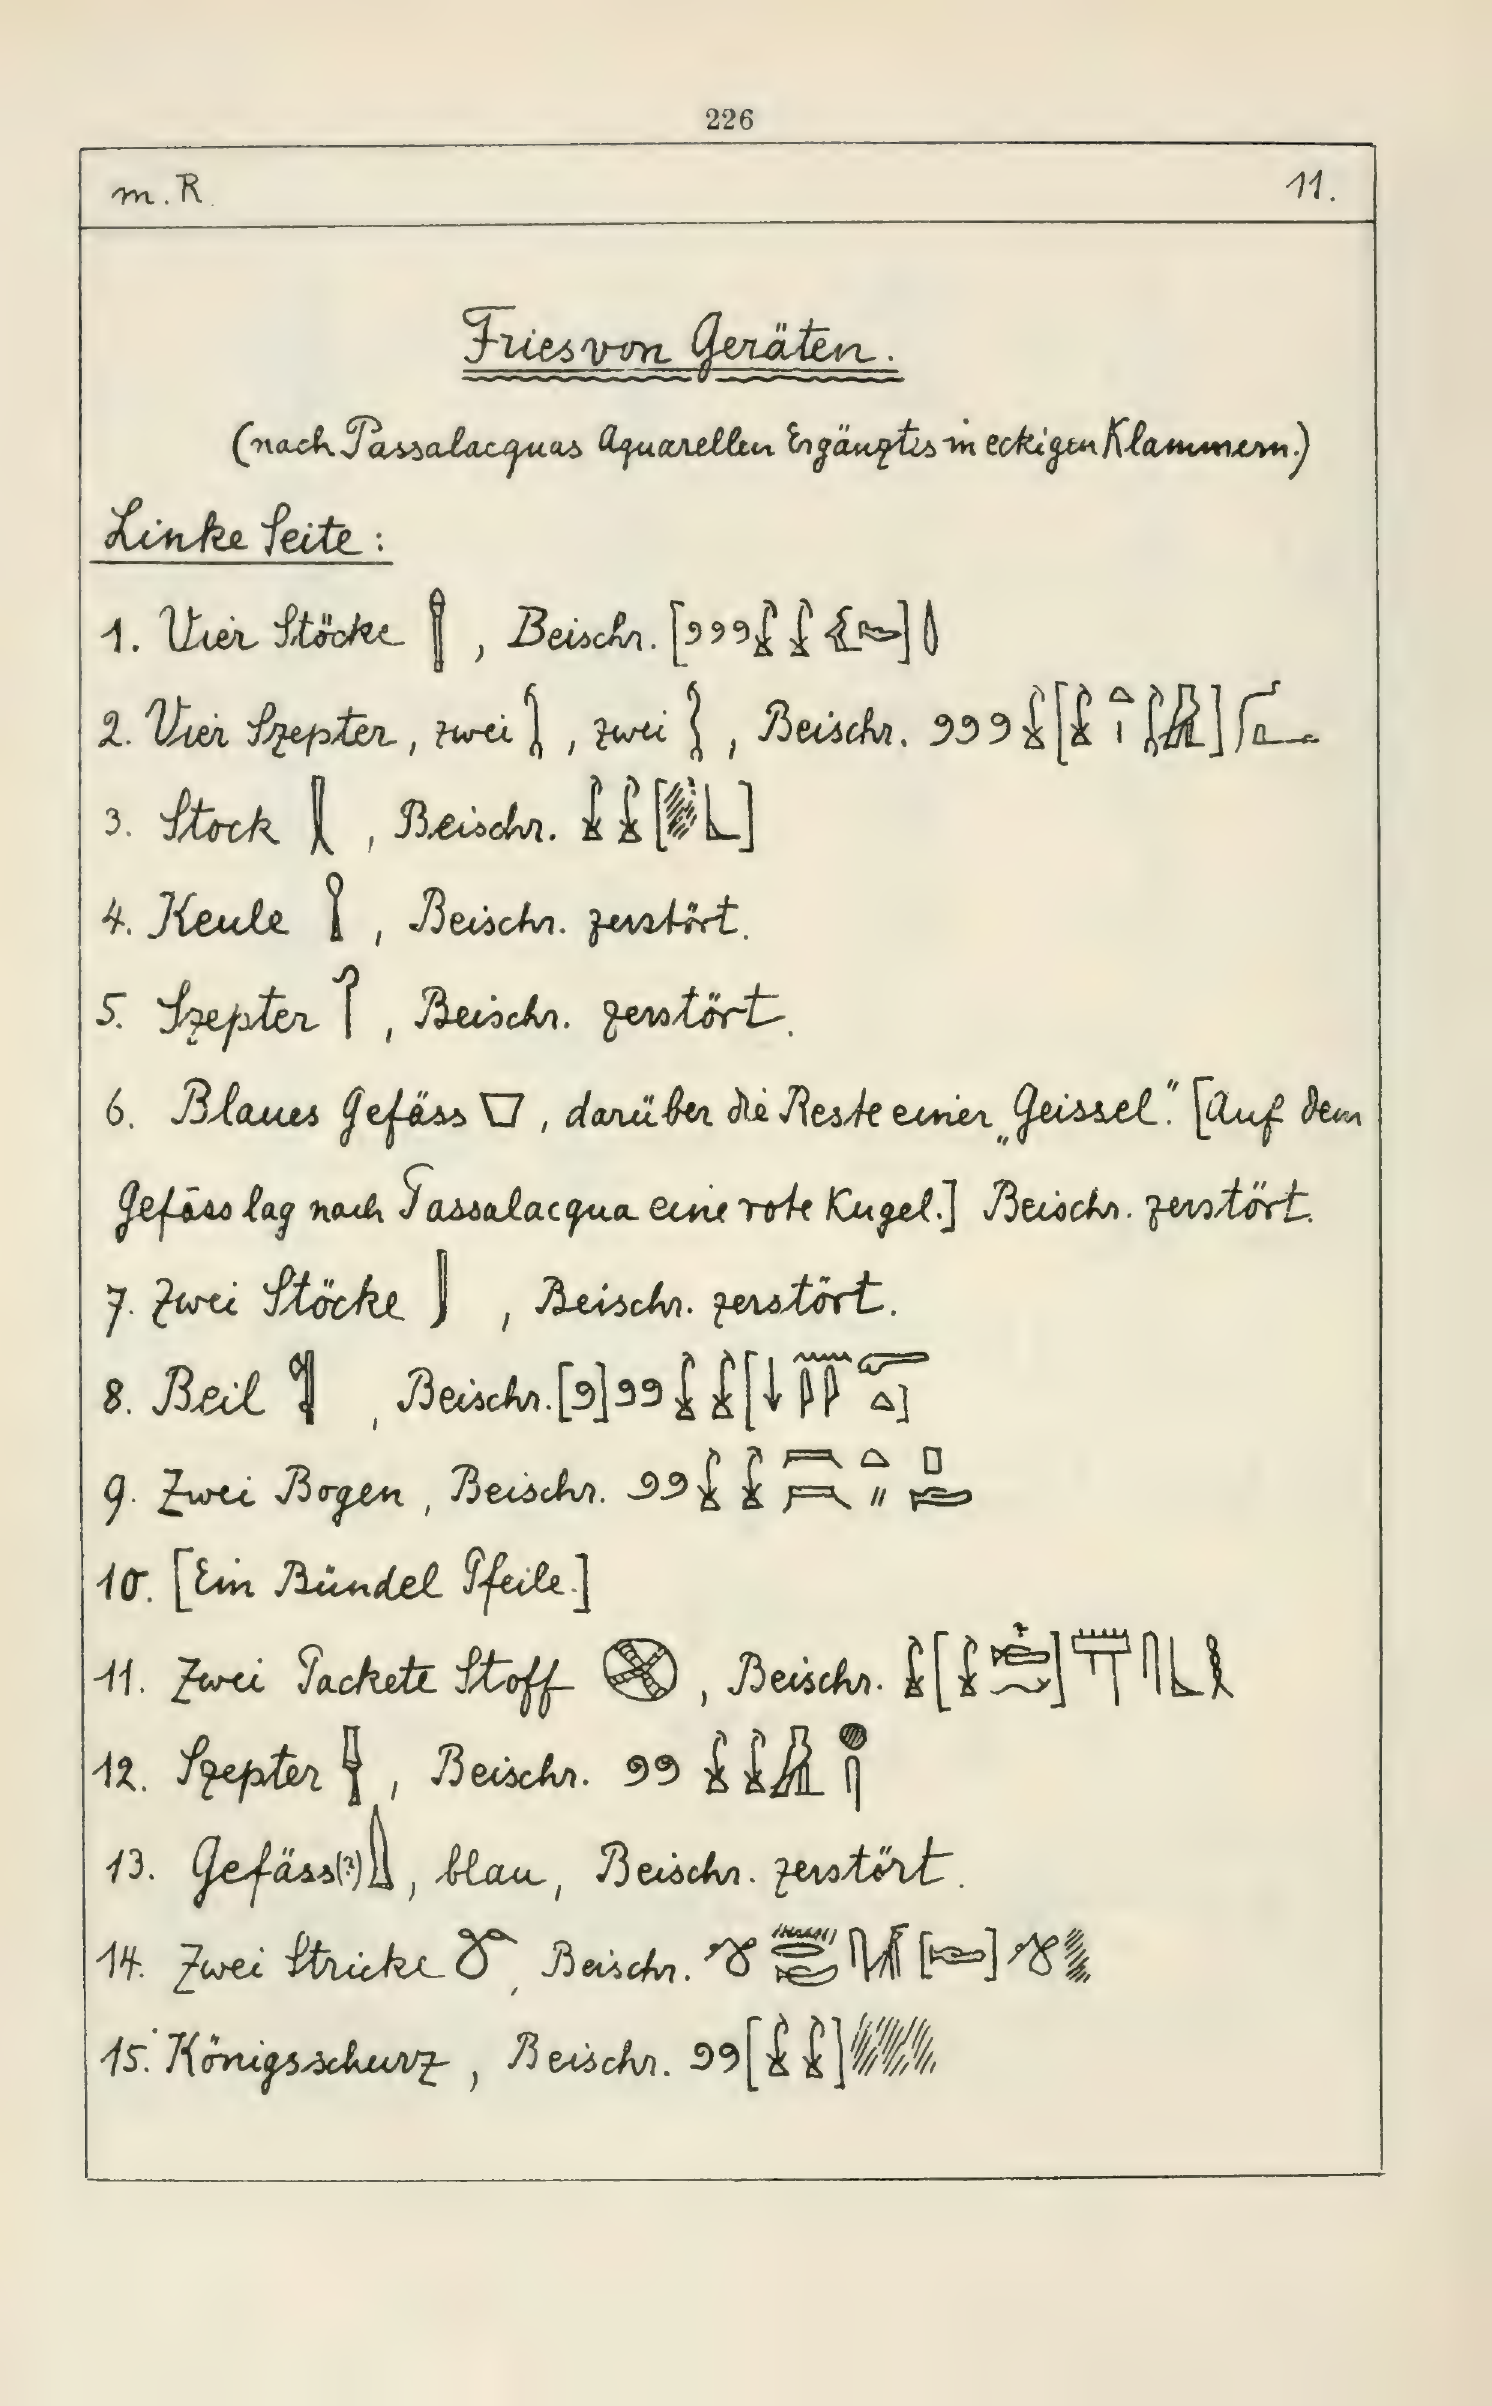 226
m. R. 11.
Fries von Geräten.
(nach Passalacquas Aquarellen Ergänztes in eckigen Klammern.)
Linke Seite:
1. Vier Stöcke , Beischr.
2. Vier Szepter, zwei , zwei , Beischr.
3. Stock , Beischr.
4. Keule , Beischr. zerstört.
5. Szepter , Beischr. zerstört.
6. Blaues Gefäss , darüber die Reste einer „Geissel.“ [Auf dem
Gefäss lag nach Passalacqua eine rote Kugel.] Beischr. zerstört.
7. Zwei Stöcke , Beischr. zerstört.
8. Beil , Beischr.
9. Zwei Bogen, Beischr.
10. [Ein Bündel Pfeile.]
11. Zwei Packete Stoff , Beischr.
12. Szepter , Beischr.
13. Gefäss(?) , blau, Beischr. zerstört.
14. Zwei Stricke , Beischr.
15. Königsschurz, Beischr.